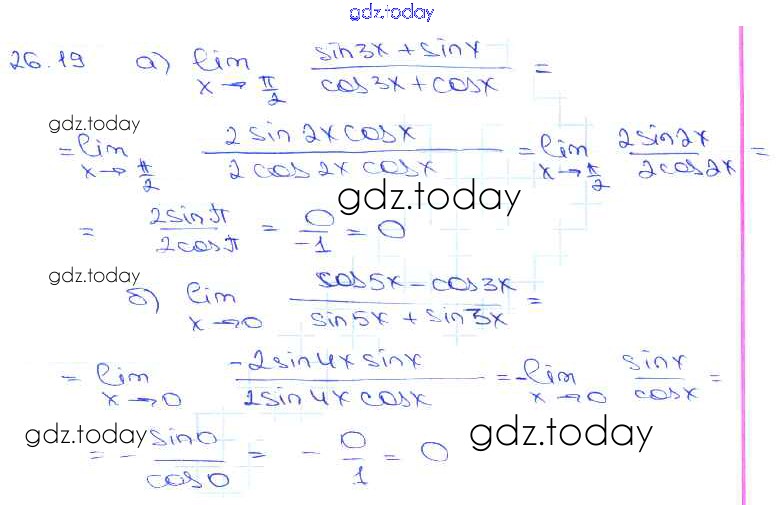 gdz.today
26.19 а) lim x→π/2 (sin3x + sinx)/(cos3x + cosx) =
gdz.today
= lim x→π/2 (2 sin 2x cosx)/(2 cos 2x cosx) = lim x→π/2 (2sin2x)/(2cos2x) =
gdz.today
= (2sinπ)/(2cosπ) = 0/-1 = 0
gdz.today
б) lim x→0 (cos5x - cos3x)/(sin5x + sin3x) =
= lim x→0 (-2sin4x sinx)/(2sin4x cosx) = -lim x→0 sinx/cosx =
gdz.today
gdz.today
= - sin0/cos0 = - 0/1 = 0